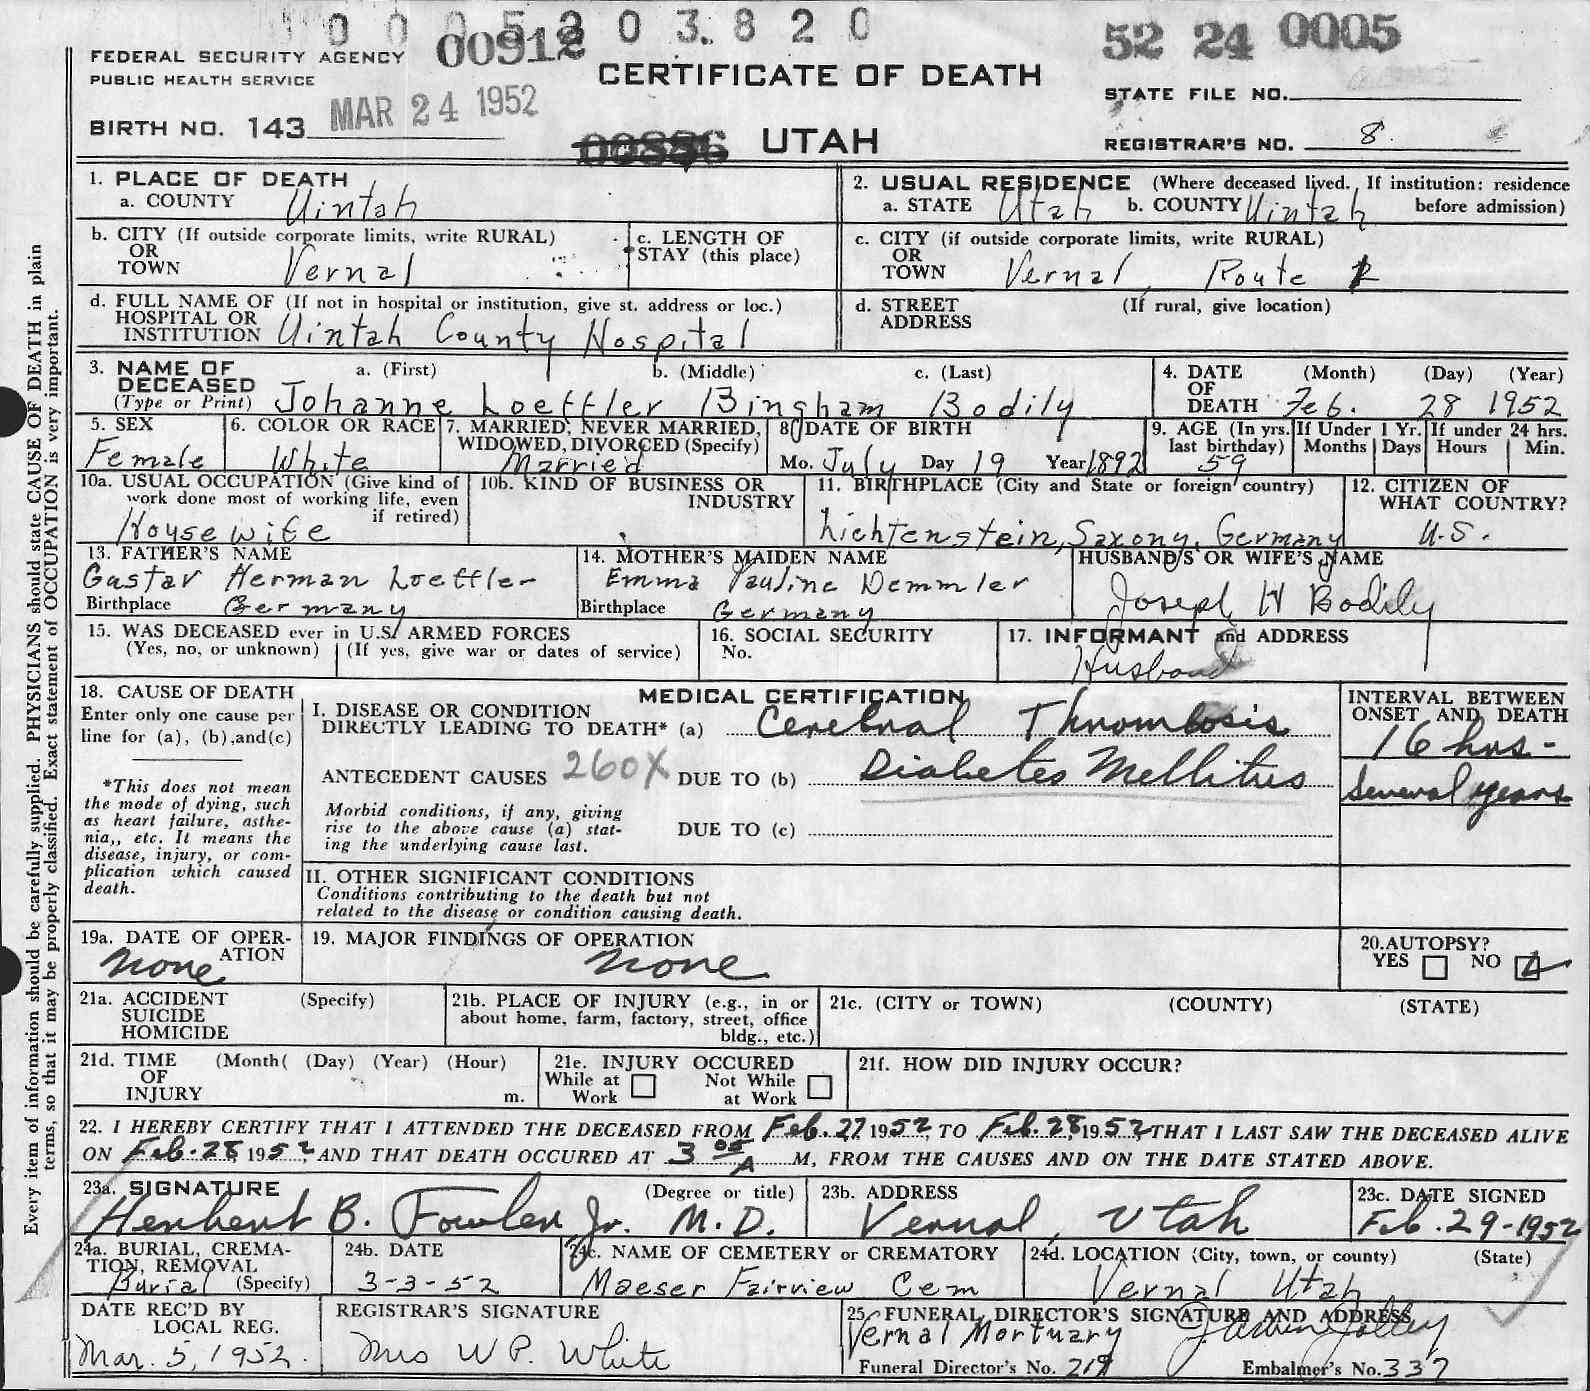 0 0 0 5 2 0 3 8 2 0
FEDERAL SECURITY AGENCY
PUBLIC HEALTH SERVICE
00912
CERTIFICATE OF DEATH
52 24 0005
STATE FILE NO.
BIRTH NO. 143
MAR 24 1952
UTAH
REGISTRAR'S NO. 8.
Every item of information should be carefully supplied. PHYSICIANS should state CAUSE OF DEATH in plain
terms, so that it may be properly classified. Exact statement of OCCUPATION is very important.
1. PLACE OF DEATH
a. COUNTY Uintah
2. USUAL RESIDENCE (Where deceased lived. If institution: residence
a. STATE Utah b. COUNTY Uintah before admission)
b. CITY (If outside corporate limits, write RURAL)
OR
TOWN Vernal
c. LENGTH OF
STAY (this place)
c. CITY (if outside corporate limits, write RURAL)
OR
TOWN Vernal Route
d. FULL NAME OF (If not in hospital or institution, give st. address or loc.)
HOSPITAL OR
INSTITUTION Uintah County Hospital
d. STREET (If rural, give location)
ADDRESS
3. NAME OF a. (First) b. (Middle) c. (Last)
DECEASED
(Type or Print) Johanne Loeffler Bingham Bodily
4. DATE (Month) (Day) (Year)
OF
DEATH Feb. 28 1952
5. SEX
Female
6. COLOR OR RACE
White
7. MARRIED, NEVER MARRIED,
WIDOWED, DIVORCED (Specify)
Married
8. DATE OF BIRTH
Mo. July Day 19 Year 1892
9. AGE (In yrs.
last birthday)
59
If Under 1 Yr.
Months Days
If under 24 hrs.
Hours Min.
10a. USUAL OCCUPATION (Give kind of
work done most of working life, even
if retired)
Housewife
10b. KIND OF BUSINESS OR
INDUSTRY
11. BIRTHPLACE (City and State or foreign country)
Lichtenstein, Saxony, Germany
12. CITIZEN OF
WHAT COUNTRY?
U.S.
13. FATHER'S NAME
Gustav Herman Loeffler
Birthplace Germany
14. MOTHER'S MAIDEN NAME
Emma Pauline Demmler
Birthplace Germany
HUSBAND'S OR WIFE'S NAME
Joseph H Bodily
15. WAS DECEASED ever in U.S. ARMED FORCES
(Yes, no, or unknown) (If yes, give war or dates of service)
16. SOCIAL SECURITY
No.
17. INFORMANT and ADDRESS
Husband
18. CAUSE OF DEATH
Enter only one cause per
line for (a), (b), and (c)
*This does not mean
the mode of dying, such
as heart failure, asthe-
nia,, etc. It means the
disease, injury, or com-
plication which caused
death.
MEDICAL CERTIFICATION
I. DISEASE OR CONDITION
DIRECTLY LEADING TO DEATH* (a) Cerebral Thrombosis
ANTECEDENT CAUSES 260X DUE TO (b) Diabetes Mellitus
Morbid conditions, if any, giving
rise to the above cause (a) stat-
ing the underlying cause last.
DUE TO (c)
II. OTHER SIGNIFICANT CONDITIONS
Conditions contributing to the death but not
related to the disease or condition causing death.
INTERVAL BETWEEN
ONSET AND DEATH
16 hrs-
Several years
19a. DATE OF OPER-
ATION
None
19. MAJOR FINDINGS OF OPERATION
None
20. AUTOPSY?
YES NO
21a. ACCIDENT (Specify)
SUICIDE
HOMICIDE
21b. PLACE OF INJURY (e.g., in or
about home, farm, factory, street, office
bldg., etc.)
21c. (CITY or TOWN) (COUNTY) (STATE)
21d. TIME (Month( (Day) (Year) (Hour)
OF
INJURY m.
21e. INJURY OCCURED
While at Not While
Work at Work
21f. HOW DID INJURY OCCUR?
22. I HEREBY CERTIFY THAT I ATTENDED THE DECEASED FROM Feb. 27, 1952, TO Feb. 28, 1952, THAT I LAST SAW THE DECEASED ALIVE
ON Feb. 28, 1952, AND THAT DEATH OCCURED AT 3 05 A M, FROM THE CAUSES AND ON THE DATE STATED ABOVE.
23a. SIGNATURE (Degree or title)
Herbert B. Fowler Jr. M.D.
23b. ADDRESS
Vernal, Utah
23c. DATE SIGNED
Feb. 29-1952
24a. BURIAL, CREMA-
TION, REMOVAL
Burial (Specify)
24b. DATE
3-3-52
24c. NAME OF CEMETERY or CREMATORY
Maeser Fairview Cem
24d. LOCATION (City, town, or county) (State)
Vernal Utah
DATE REC'D BY
LOCAL REG.
Mar. 5, 1952.
REGISTRAR'S SIGNATURE
Mrs W P. White
25. FUNERAL DIRECTOR'S SIGNATURE AND ADDRESS
Vernal Mortuary
Funeral Director's No. 219 Embalmer's No. 337